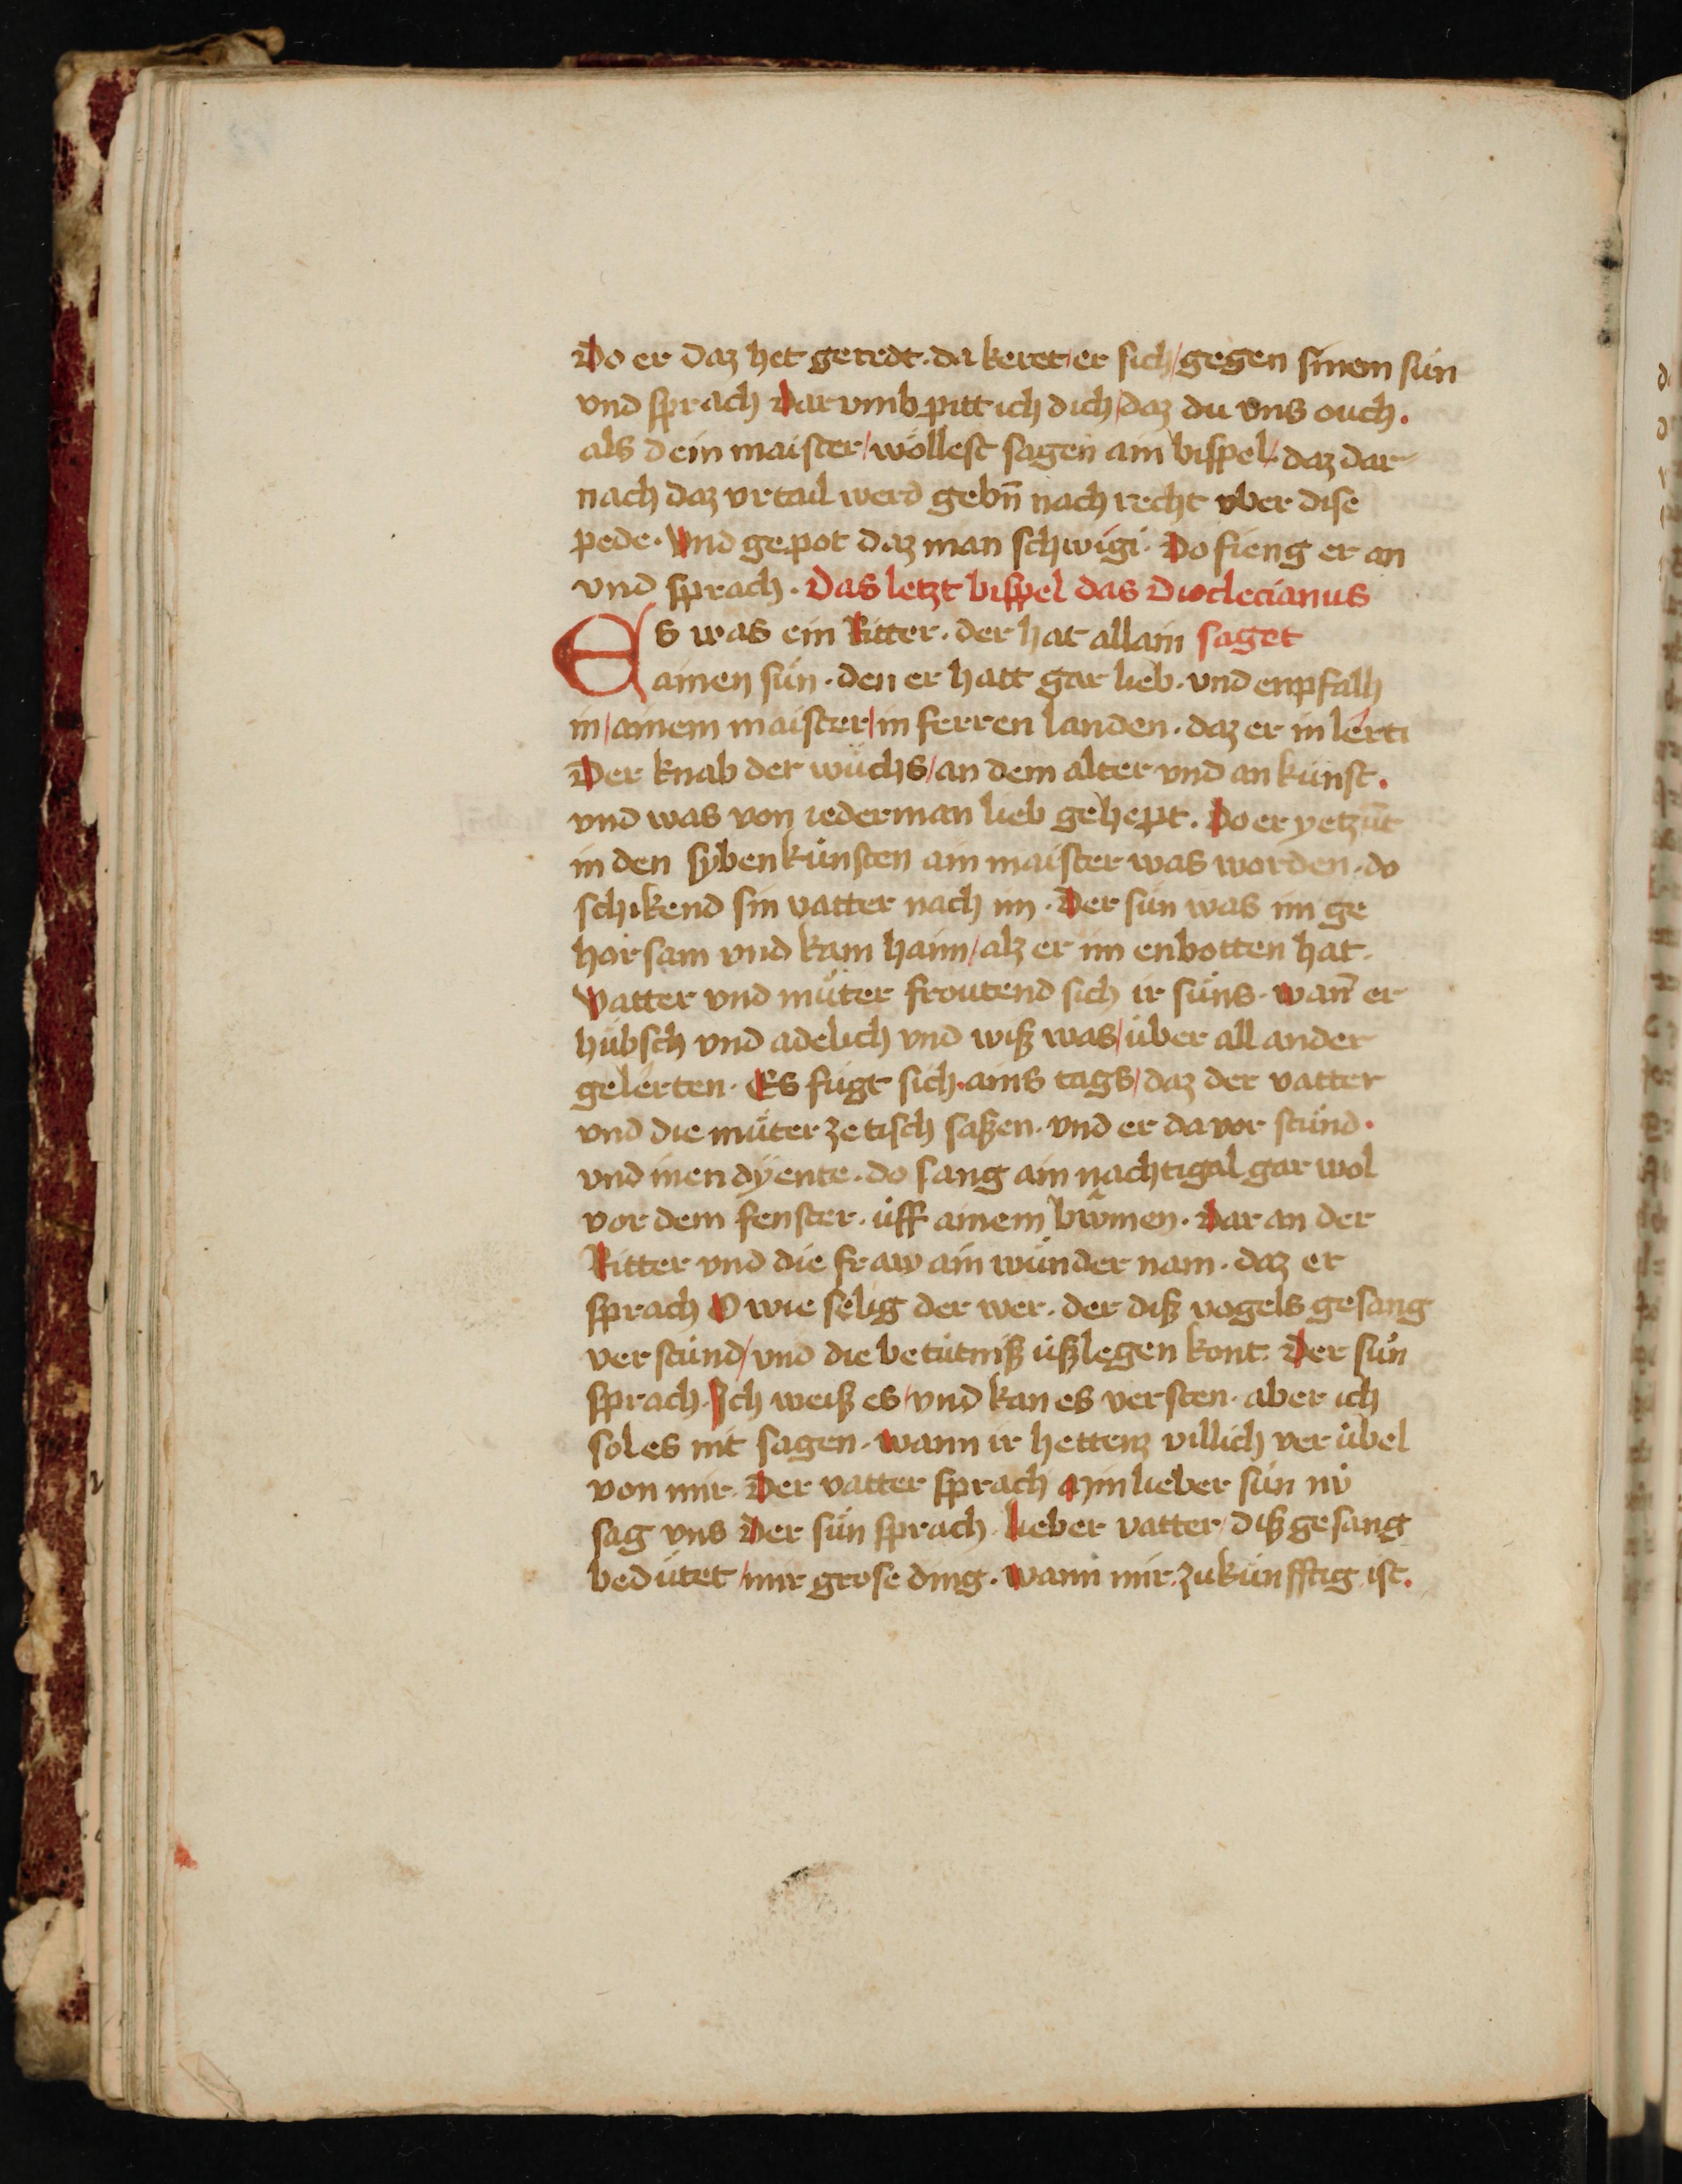 Do er daz het geredt · da keret er sich / gegen sinem sún
vnd sprach Dar vmb pitt ich dich / daz du vns ouch .
als dein maister / wöllest sagen ain bispel / daz dar
nach daz vrtail werd gebn̄ nach recht vber dise
pede · Vnd gepot daz man schwigi · Do fieng er an
vnd sprach · Das letzt bispel das Dioclecianus
Es was ein Ritter · der hat allain saget
ainen sún · den er hatt gar lieb · vnd enpfalh
in / ainem maister / in ferren landen · daz er in lérti
Der knab der wůchs / an dem alter vnd an kúnst .
vnd was von iederman lieb gehept . Do er yetzūt
in den syben kúnsten ain maister was worden · do
schikend sin vatter nach im · Der sún was im ge
horsam vnd kam haim / alz er im enbotten hat ·
Vatter vnd můter froutend sich ir súns · wan̄ er
húbsch vnd adelich vnd wiß was / úber all ander
gelérten · Es fúgt sich ains tags / daz der vatter
vnd die můter ze tisch saßen · vnd er da vor stůnd ·
vnd inen dÿente · do sang ain nachtigal gar wol
vor dem fenster · úff ainem brômen · Dar an der
Ritter vnd die fraw ain wúnder nam · daz er
sprach O wie sélig der wer · der diß vogels gesang
verstúnd / vnd die betútniß úßlegen kont · Der sún
sprach · Ich weiß es / vnd kan es versten · aber ich
sol es nit sagen · wann ir hettenz villich ver úbel
von mir · Der vatter sprach Min lieber sún nv̊
sag vns Der sún sprach · lieber vatter / diß gesang
bedútet / mir grose ding · wann mir zukúnfftig ist .